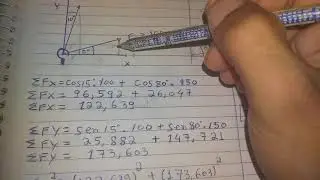 Y
10°
15°
X
ΣFx = Cos15°.100 + Cos80°.150
ΣFx = 96,592 + 26,047
ΣFx = 122,639
ΣFy = Sen15°.100 + Sen80°.150
ΣFy = 25,882 + 147,721
ΣFy = 173,603